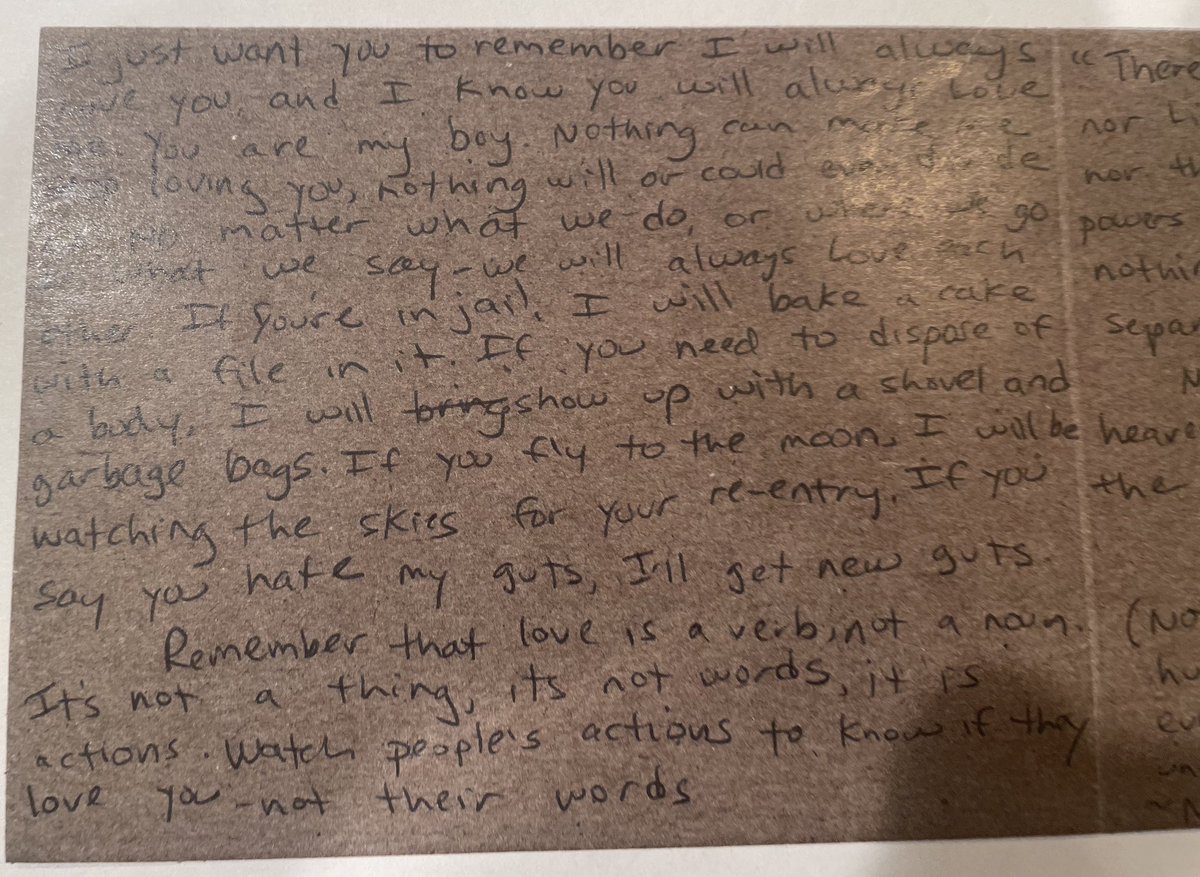 I just want you to remember I will always
love you, and I know you will always love
me. You are my boy. Nothing can make me
stop loving you, nothing will or could ever divide
us. No matter what we do, or where we go
or what we say - we will always love each
other. If you're in jail, I will bake a cake
with a file in it. If you need to dispose of
a body, I will bring show up with a shovel and
garbage bags. If you fly to the moon, I will be
watching the skies for your re-entry. If you
say you hate my guts, I'll get new guts.
Remember that love is a verb, not a noun.
It's not a thing, its not words, it is
actions. Watch people's actions to know if they
love you - not their words
"There
nor
nor
powers
the